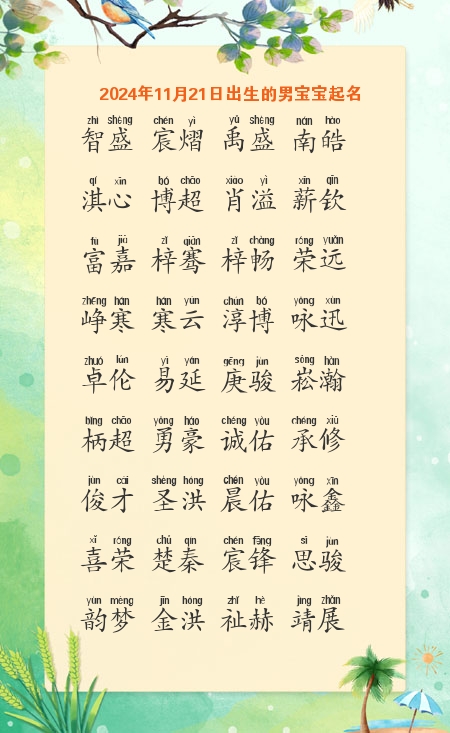 2024年11月21日出生的男宝宝起名
zhì shèng chén yì yǔ shèng nán hào
智盛 宸熠 禹盛 南皓
qí xīn bó chāo xiāo yì xīn qīn
淇心 博超 肖溢 薪钦
fù jiā zǐ qiān zǐ chàng róng yuǎn
富嘉 梓骞 梓畅 荣远
zhēng hán hán yún chún bó yǒng xùn
峥寒 寒云 淳博 咏迅
zhuó lún yì yán gēng jùn sōng hàn
卓伦 易延 庚骏 崧瀚
bǐng chāo yǒng háo chéng yòu chéng xiū
柄超 勇豪 诚佑 承修
jùn cái shèng hóng chén yòu yǒng xīn
俊才 圣洪 晨佑 咏鑫
xǐ róng chǔ qín chén fēng sī jùn
喜荣 楚秦 宸锋 思骏
yùn mèng jīn hóng zhǐ hè jìng zhǎn
韵梦 金洪 祉赫 靖展